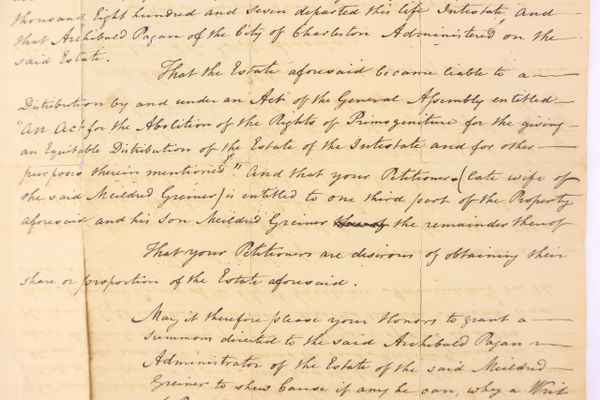 thousand Eight hundred and Seven departed this life Intestate, and
that Archibald Pagan of the City of Charleston Administered on the
said Estate.
That the Estate aforesaid became liable to a
Distribution by and under an Act of the General Assembly entitled
"An Act for the Abolition of the Rights of Primogeniture for the giving
an Equitable Distribution of the Estate of the Intestate and for other
purposes therein mentioned" And that your Petitioners (late wife of
the said Meildred Greiner) is entitled to one third part of the Property
aforesaid and his Son Meildred Greiner the remainder thereof
That your Petitioners are desirous of obtaining their
share or proportion of the Estate aforesaid.
May it therefore please your Honors to grant a
Summons directed to the said Archibald Pagan
Administrator of the Estate of the said Meildred
Greiner to shew Cause if any he can, why a Writ